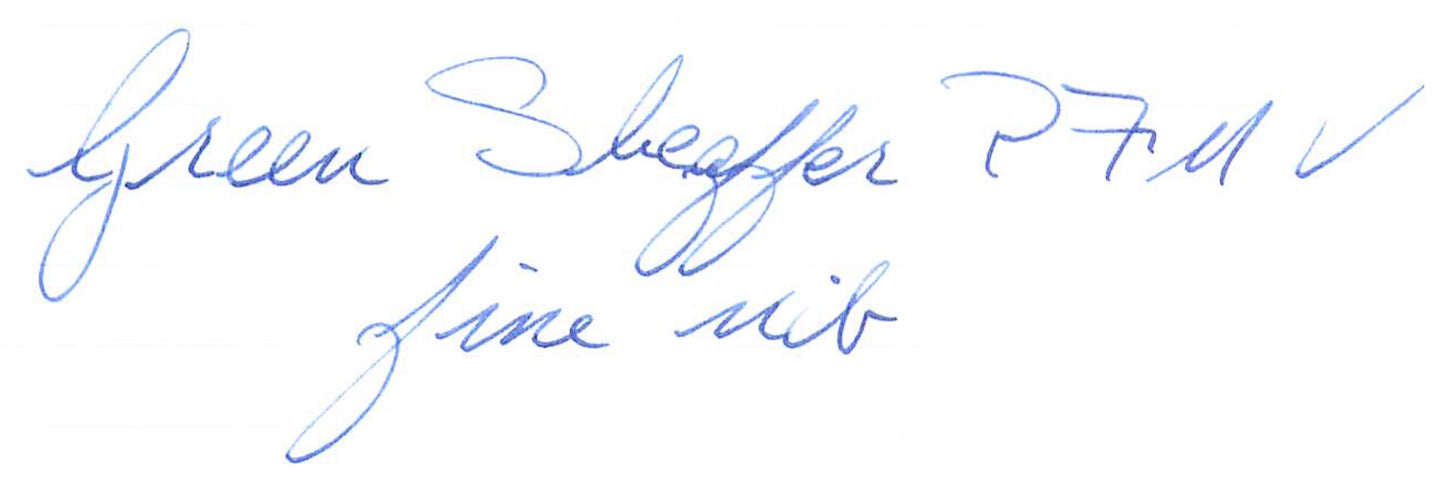 Green Sheaffer PFM V
fine nib